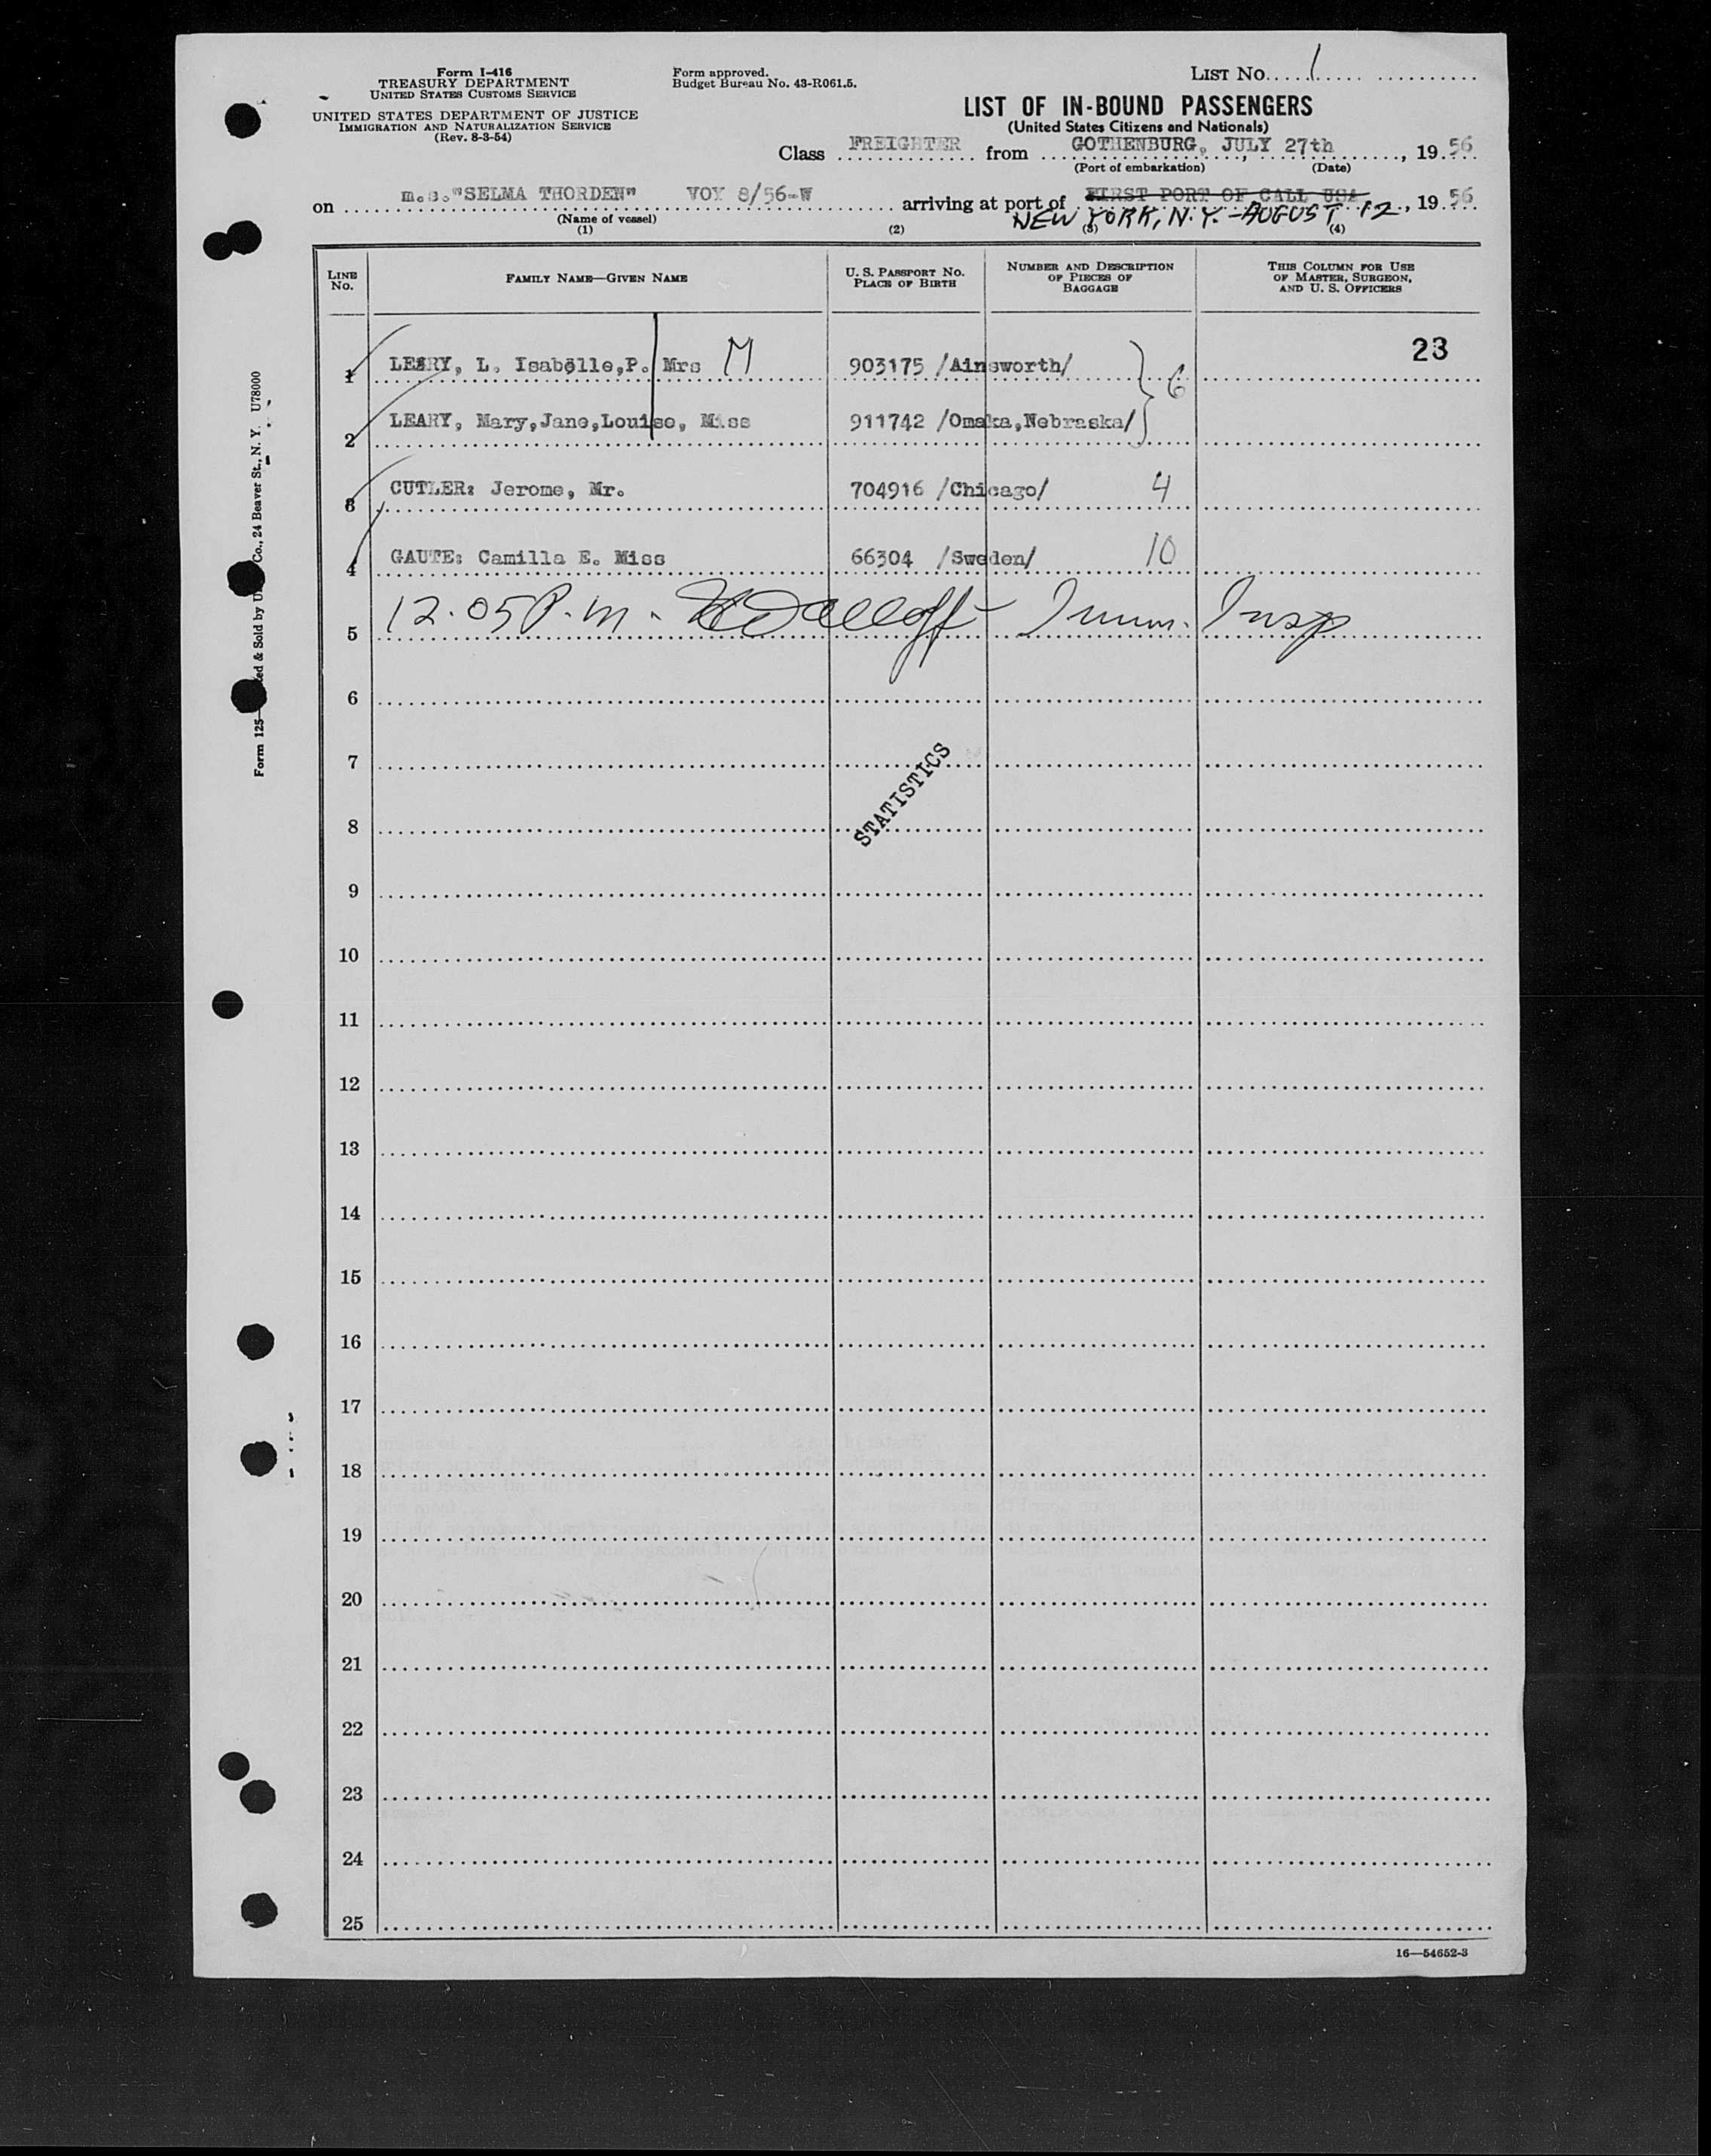 Form I-416
TREASURY DEPARTMENT
UNITED STATES CUSTOMS SERVICE
UNITED STATES DEPARTMENT OF JUSTICE
IMMIGRATION AND NATURALIZATION SERVICE
(Rev. 8-3-54)
Form approved.
Budget Bureau No. 43-R061.5.
LIST NO. 1
LIST OF IN-BOUND PASSENGERS
(United States Citizens and Nationals)
Class FREIGHTER from GOTHENBURG, JULY 27th, 1956
(Port of embarkation) (Date)
on m.s."SELMA THORDEN" VOY 8/56-W arriving at port of FIRST PORT OF CALL USA, 1956
NEW YORK, N.Y. - AUGUST 12
(Name of vessel)
(1) (2) (3) (4)
LINE No. FAMILY NAME—GIVEN NAME U. S. PASSPORT NO. PLACE OF BIRTH NUMBER AND DESCRIPTION OF PIECES OF BAGGAGE THIS COLUMN FOR USE OF MASTER, SURGEON, AND U. S. OFFICERS
23
1 LEARY, L. Isabelle,P. Mrs M 903175 /Ainsworth/ 6
2 LEARY, Mary,Jane,Louise, Miss 911742 /Omaka,Nebraska/
3 CUTLER: Jerome, Mr. 704916 /Chicago/ 4
4 GAUTE: Camilla E. Miss 66304 /Sweden/ 10
5 12.05 P.m. - Imm. Insp
6
7
STATISTICS
8
9
10
11
12
13
14
15
16
17
18
19
20
21
22
23
24
25
16—54652-3
Form 125— ed & Sold by U Co., 24 Beaver St., N. Y. U78000